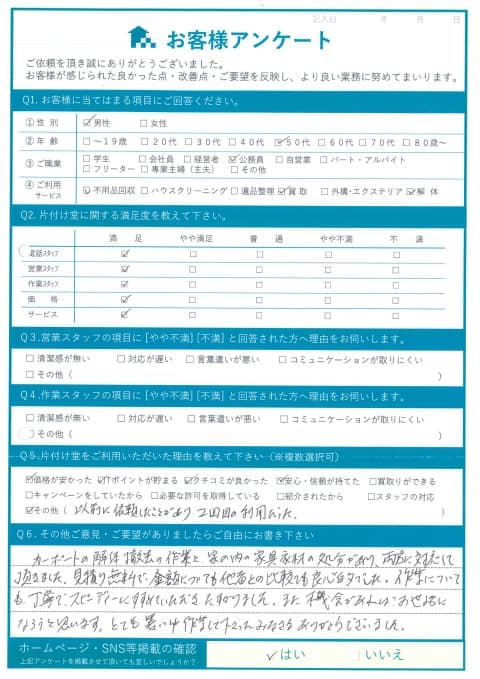 記入日 年 月 日
お客様アンケート
ご依頼を頂き誠にありがとうございました。
お客様が感じられた良かった点・改善点・ご要望を反映し、より良い業務に努めてまいります。
Q1. お客様に当てはまる項目にご回答ください。
① 性 別 ☑男性 □女性
② 年 齢 □~19歳 □20代 □30代 □40代 ☑50代 □60代 □70代 □80歳~
③ ご職業 □学生 □会社員 □経営者 ☑公務員 □自営業 □パート・アルバイト
□フリーター □専業主婦(主夫) □その他
④ ご利用サービス ☑不用品回収 □ハウスクリーニング □遺品整理 ☑買取 □外構・エクステリア ☑解体
Q2. 片付け堂に関する満足度を教えて下さい。
満足 やや満足 普通 やや不満 不満
電話スタッフ ☑ □ □ □ □
営業スタッフ ☑ □ □ □ □
作業スタッフ ☑ □ □ □ □
価格 ☑ □ □ □ □
サービス ☑ □ □ □ □
Q3. 営業スタッフの項目に[やや不満][不満]と回答された方へ理由をお伺いします。
□清潔感が無い □対応が遅い □言葉遣いが悪い □コミュニケーションが取りにくい
□その他( )
Q4. 作業スタッフの項目に[やや不満][不満]と回答された方へ理由をお伺いします。
□清潔感が無い □対応が遅い □言葉遣いが悪い □コミュニケーションが取りにくい
□その他( )
Q5. 片付け堂をご利用いただいた理由を教えて下さい(※複数選択可)
☑価格が安かった ☑Tポイントが貯まる ☑クチコミが良かった ☑安心・信頼が持てた □買取りができる
□キャンペーンをしていたから □必要な許可を取得している □紹介されたから □スタッフの対応
☑その他( 以前に依頼したことがあり2回目の利用だった。
Q6. その他ご意見・ご要望がありましたらご自由にお書き下さい
カーポートの解体撤去の作業と、家の内の家具家材の処分があり、両方に対応して
頂きました。見積り無料で、金額についても他者との比較でも良心的でした。作業について
も、丁寧で、スピーディーにすすめていただきたすかりました。また機会があれば、お世話に
なろうと思います。とても暑い中作業して下さったみなさまありがとうございました。
ホームページ・SNS等掲載の確認
上記アンケートを掲載させて頂いても宜しいでしょうか?
☑はい □いいえ